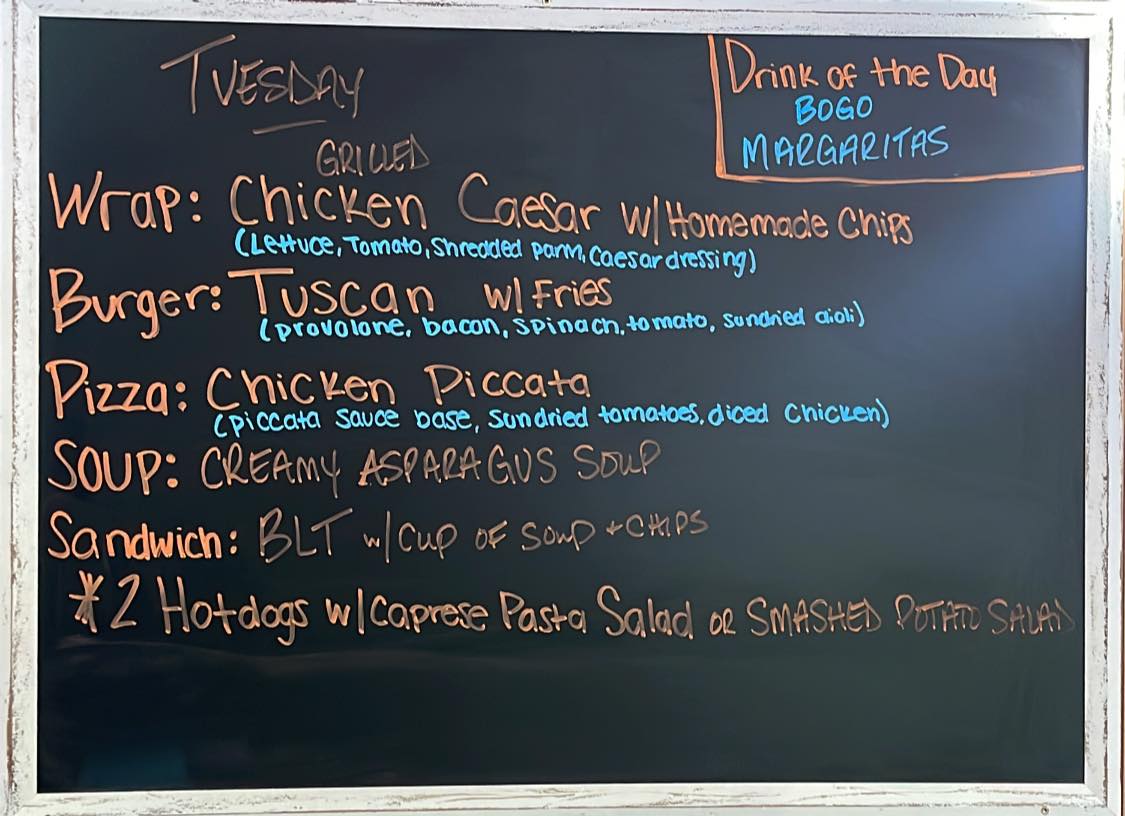 TUESDAY
Drink of the Day
BOGO
MARGARITAS
GRILLED
Wrap: Chicken Caesar w/Homemade Chips
(Lettuce, Tomato, Shredded parm, Caesar dressing)
Burger: Tuscan w/ Fries
(provolone, bacon, spinach, tomato, sundried aioli)
Pizza: Chicken Piccata
(piccata sauce base, sundried tomatoes, diced chicken)
SOUP: CREAMY ASPARAGUS SOUP
Sandwich: BLT w/ CUP OF SOUP + CHIPS
*2 Hotdogs w/Caprese Pasta Salad OR SMASHED POTATO SALAD